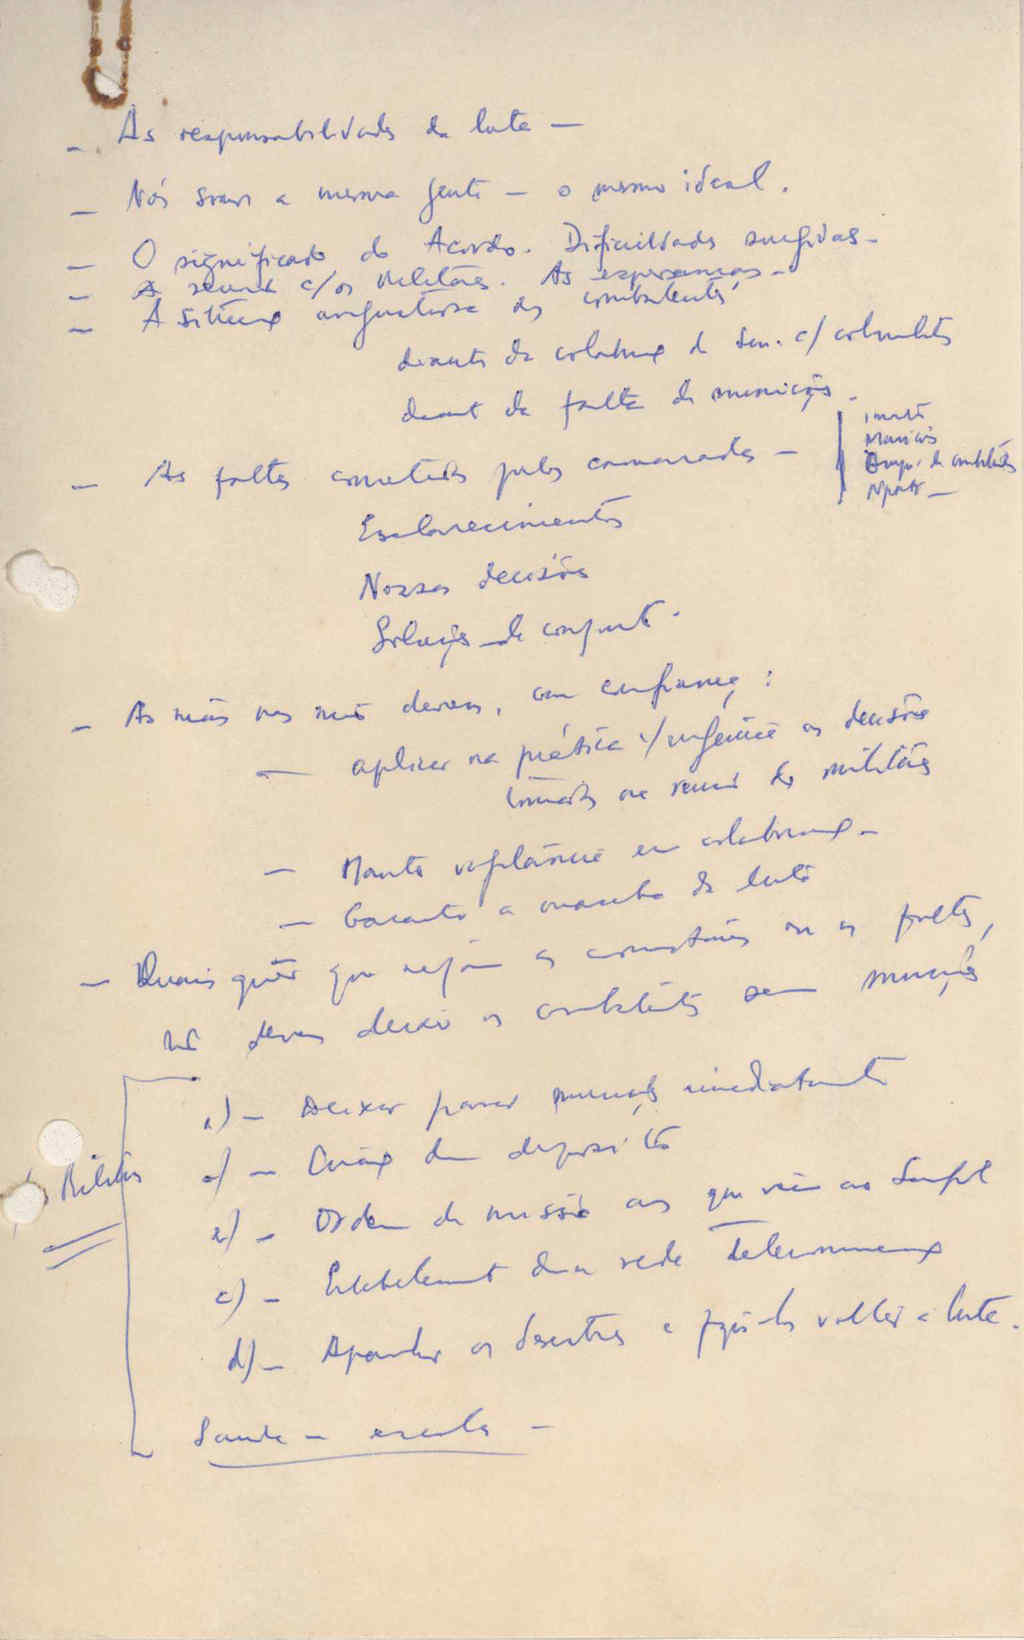 - As responsabilidades da luta -
- Nós somos a mesma gente - o mesmo ideal.
- O significado do Acordo. Dificuldades surgidas -
- A reunião c/ os militares. As esperanças -
- A situação angustiosa dos combatentes
diante da colaboração de Sen. c/ colonialistas
diante da falta de munições.
- As faltas cometidas pelos camaradas -
munições
de combatentes
Esclarecimentos
Nossas decisões
Solução de conjunto.
- As mãos nas mãos devemos, com confiança:
- aplicar na prática c/ urgência as decisões
tomadas na reunião dos militares
- Manter vigilância em colaboração -
- Garantir a marcha da luta
- Quaisquer que sejam os comentários ou as faltas,
não devemos deixar os combatentes sem munições
a) - Deixar passar munições imediatamente
- Criação dum depósito
- Ordem de missão aos que vêm ao Senegal
c) - Estabelecimento duma rede Telecomunicação
d) - Apanhar os desertores e fazê-los voltar à luta.
Militares
Saúde - escola -